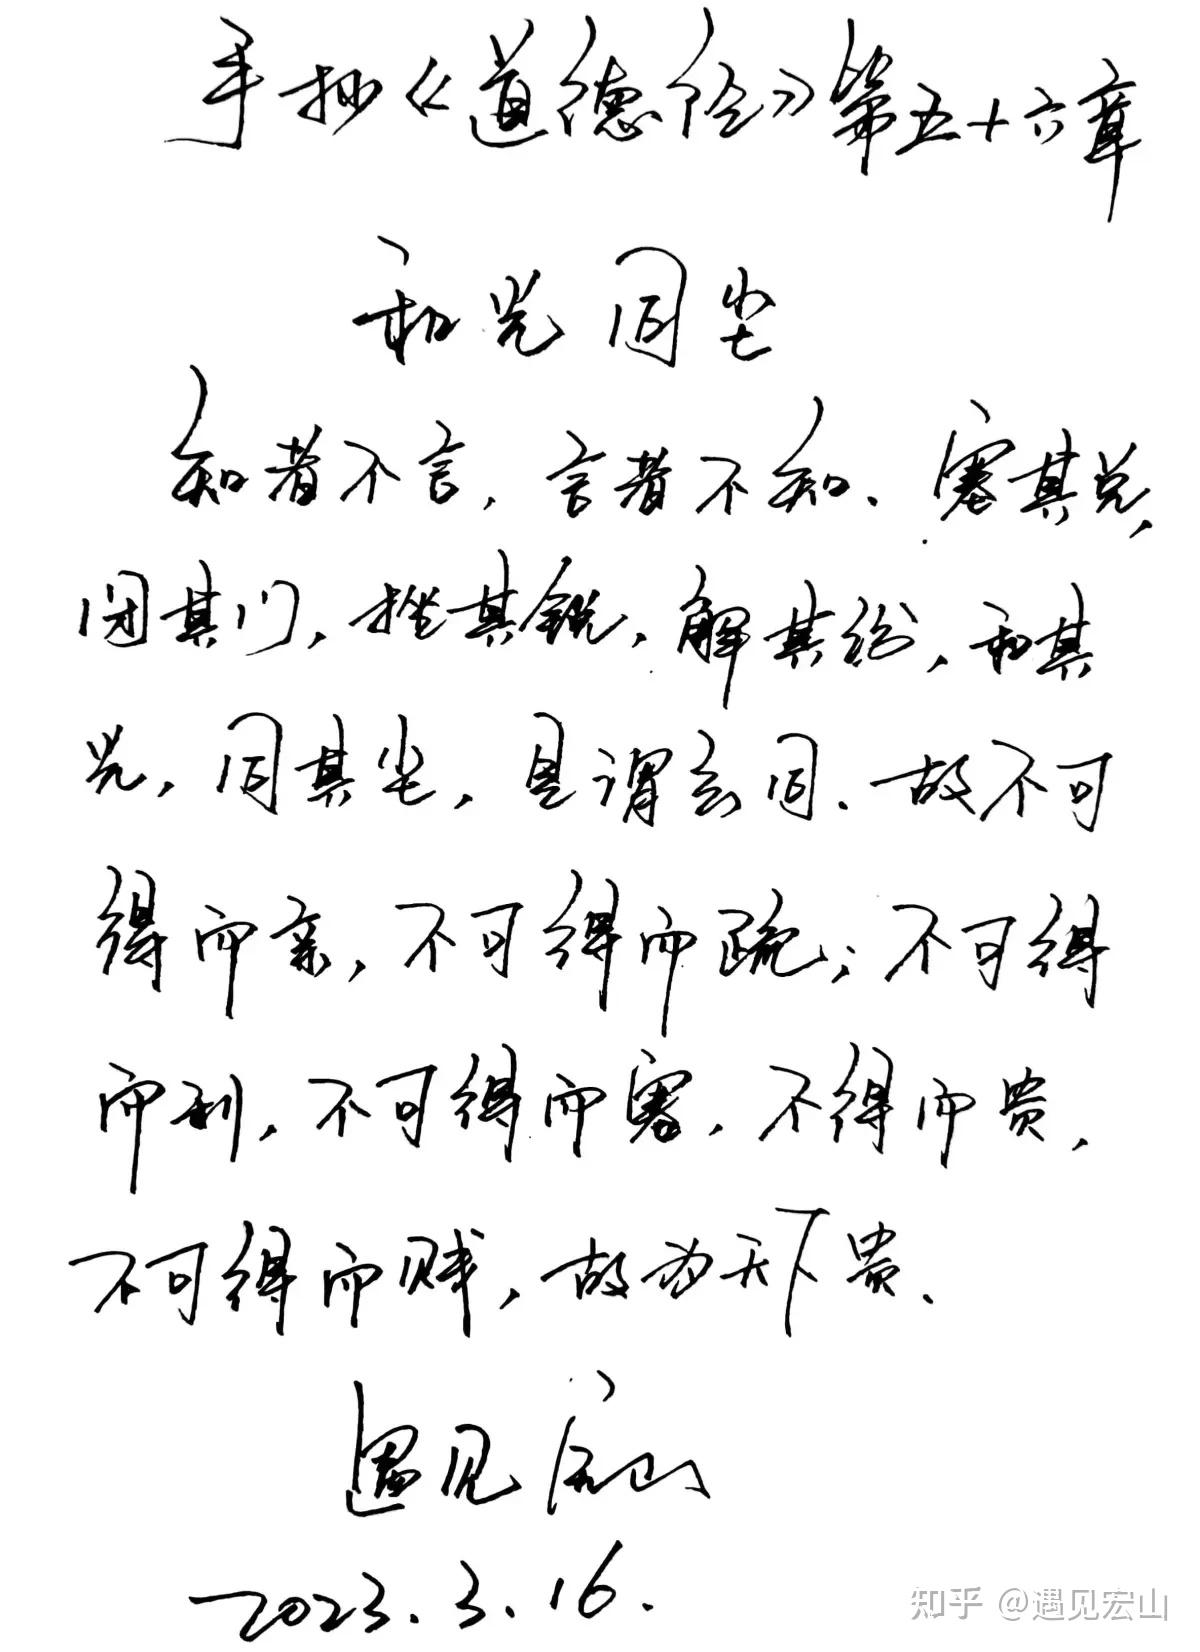 手抄《道德经》第五十六章
和光同尘
知者不言，言者不知．塞其兑，
闭其门，挫其锐，解其纷，和其
光，同其尘，是谓玄同．故不可
得而亲，不可得而疏；不可得
而利，不可得而害．不得而贵，
不可得而贱，故为天下贵．
遇见宏山
2023.3.16.
知乎 @遇见宏山